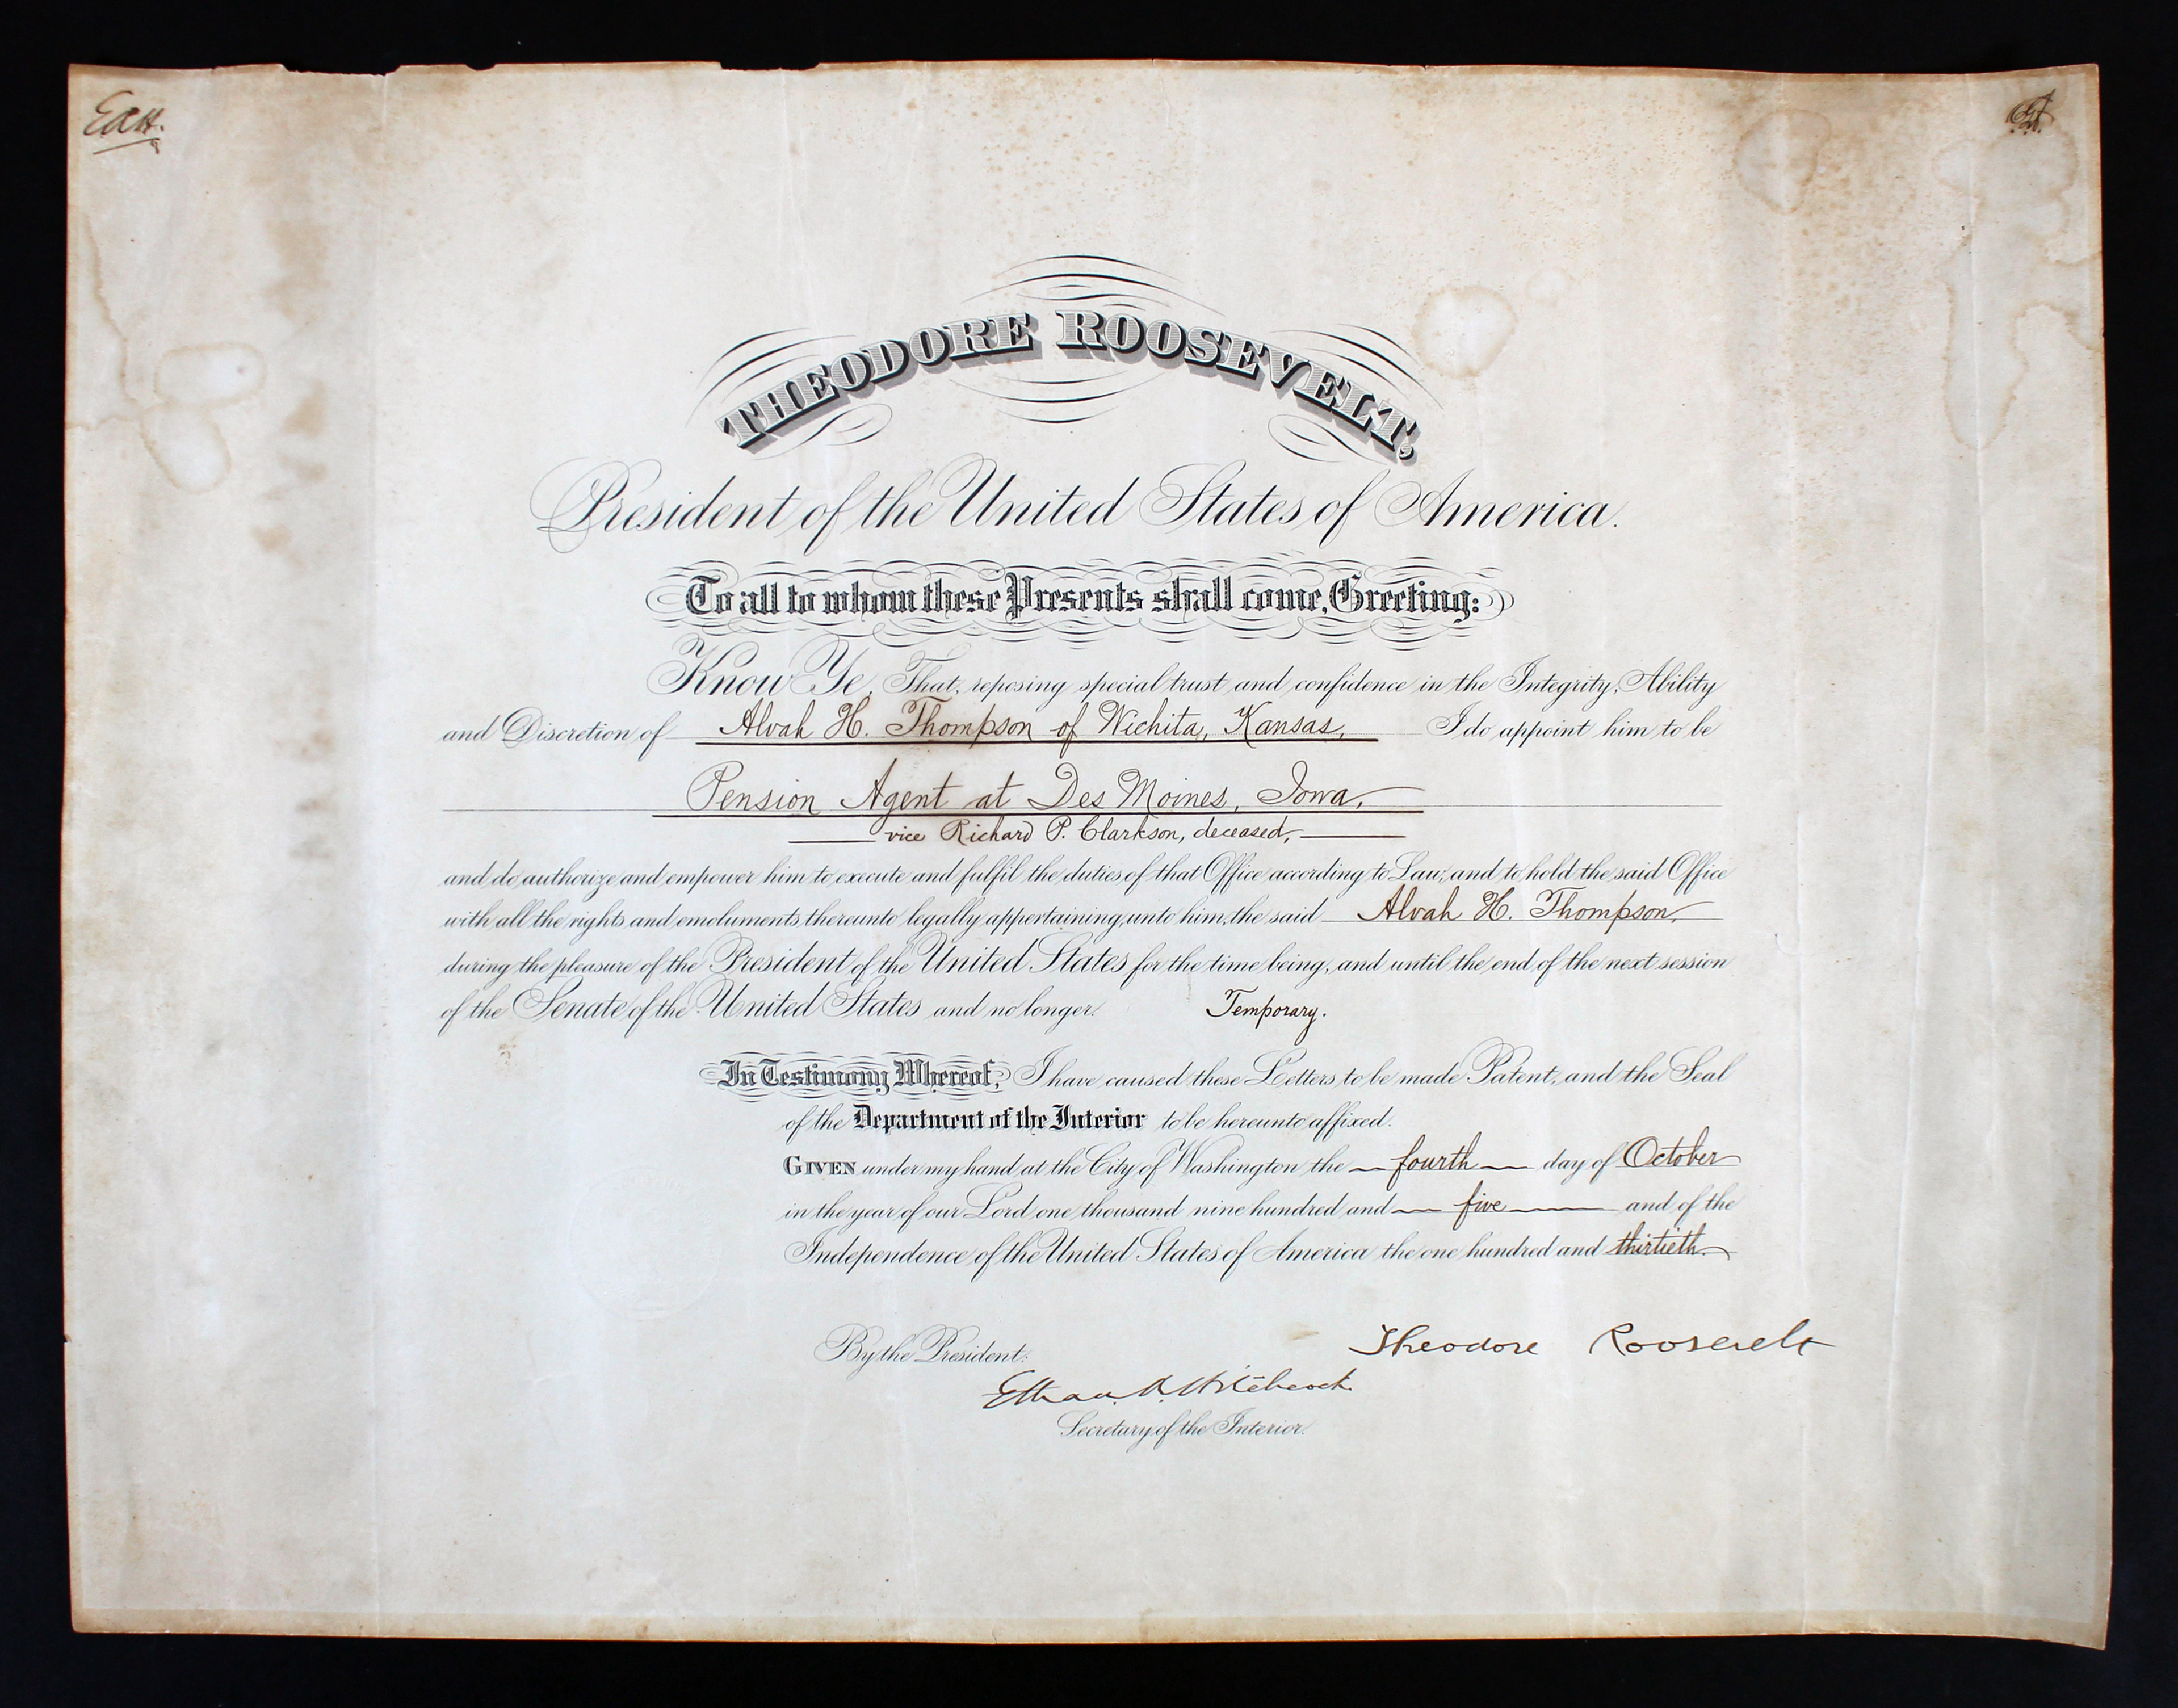 EAH.
THEODORE ROOSEVELT,
President of the United States of America.
To all to whom these Presents shall come, Greeting:
Know Ye, That, reposing special trust and confidence in the Integrity, Ability
and Discretion of Alvah H. Thompson of Wichita, Kansas, I do appoint him to be
Pension Agent at Des Moines, Iowa,
vice Richard P. Clarkson, deceased,
and do authorize and empower him to execute and fulfil the duties of that Office according to Law; and to hold the said Office
with all the rights and emoluments thereunto legally appertaining, unto him, the said Alvah H. Thompson,
during the pleasure of the President of the United States for the time being, and until the end of the next session
of the Senate of the United States and no longer. Temporary.
In Testimony Whereof, I have caused these Letters to be made Patent, and the Seal
of the Department of the Interior to be hereunto affixed.
GIVEN under my hand at the City of Washington the fourth day of October
in the year of our Lord one thousand nine hundred and five and of the
Independence of the United States of America the one hundred and thirtieth.
By the President: Theodore Roosevelt
Ethan A. Hitchcock.
Secretary of the Interior.